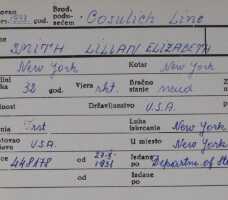 ovan Brod. podu-
193 god. sećem Cosulich Line
SMITH LILLIAN ELIZABETH
New York Kotar New York
32 god. Vjera rkt. Bračno stanje neud
nost Državljanstvo U.S.A.
Trst Luka iskrcanja New York
U.S.A. U mjesto New York
448178 od 1931 Izdane po Departm. of St
od Izdane po